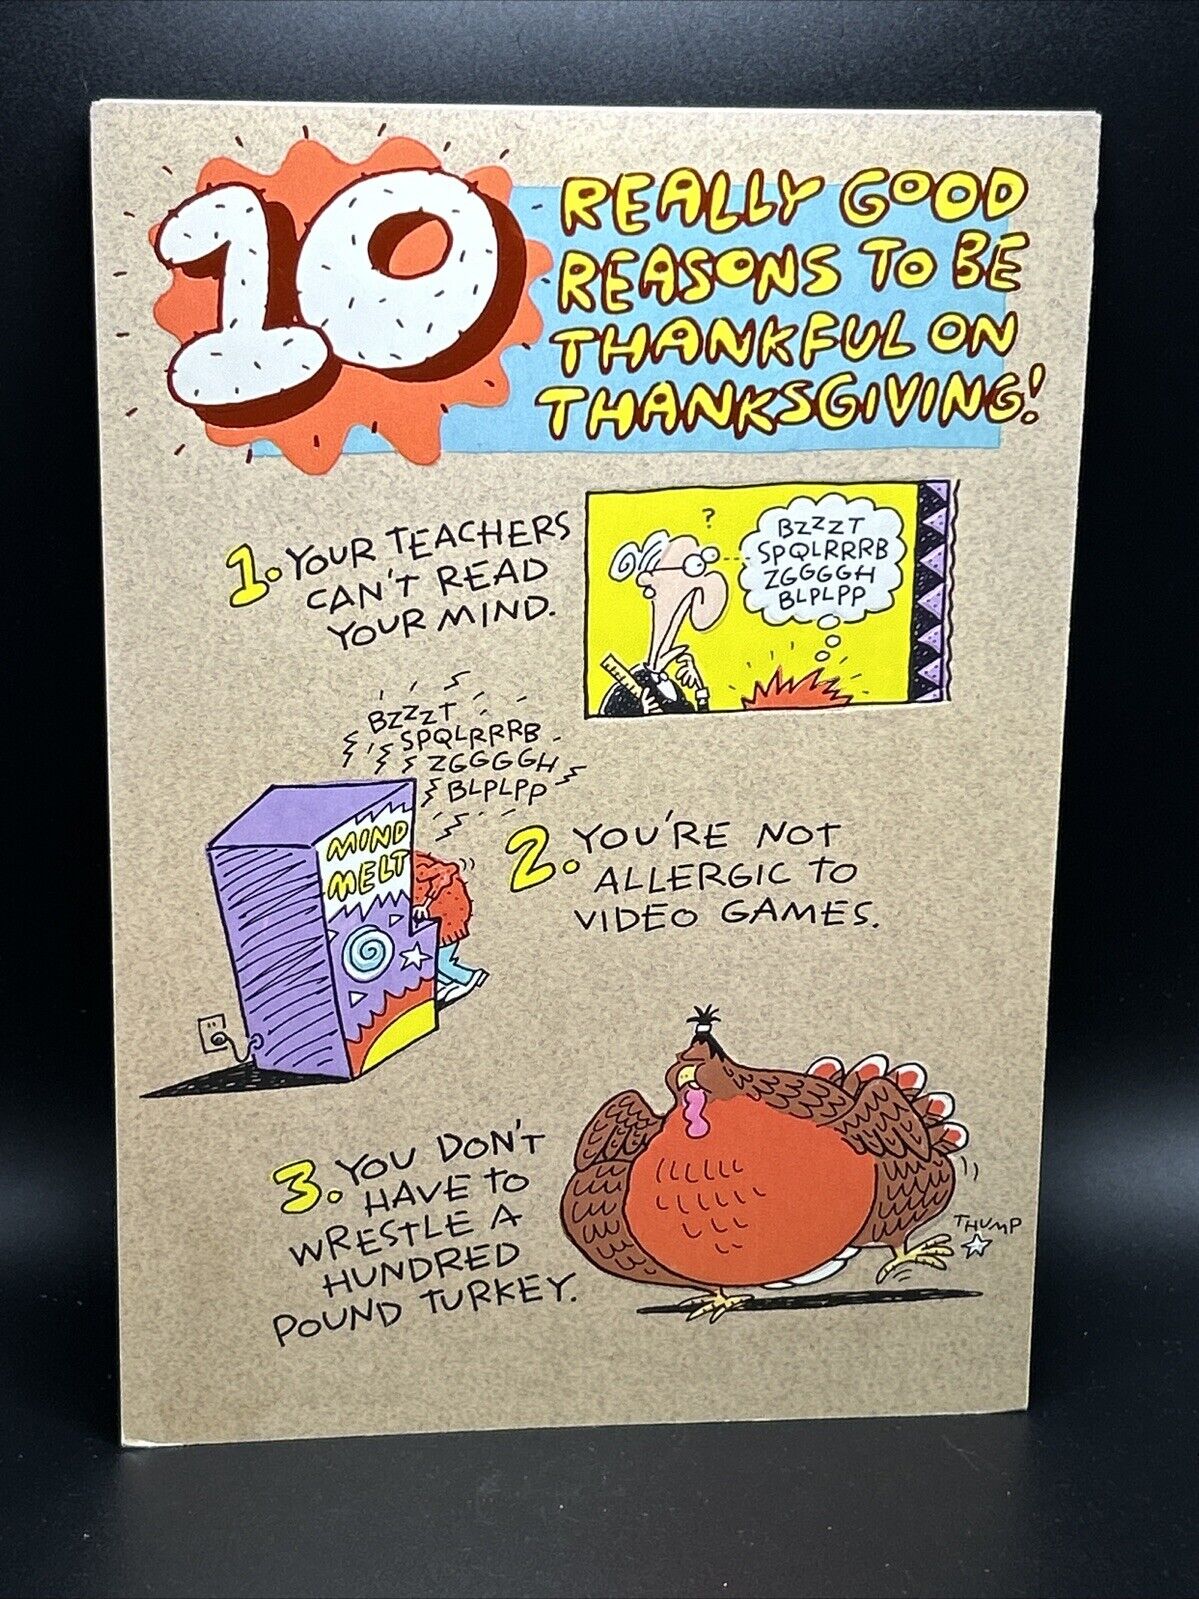 10
REALLY GOOD
REASONS TO BE
THANKFUL ON
THANKSGIVING!
1. YOUR TEACHERS
CAN'T READ
YOUR MIND.
?
BZZZT
SPQLRRRB
ZGGGGH
BLPLPP
BZZZT
SPQLRRRB
ZGGGGH
BLPLPP
MIND
MELT
2. YOU'RE NOT
ALLERGIC TO
VIDEO GAMES.
3. YOU DON'T
HAVE TO
WRESTLE A
HUNDRED
POUND TURKEY.
THUMP